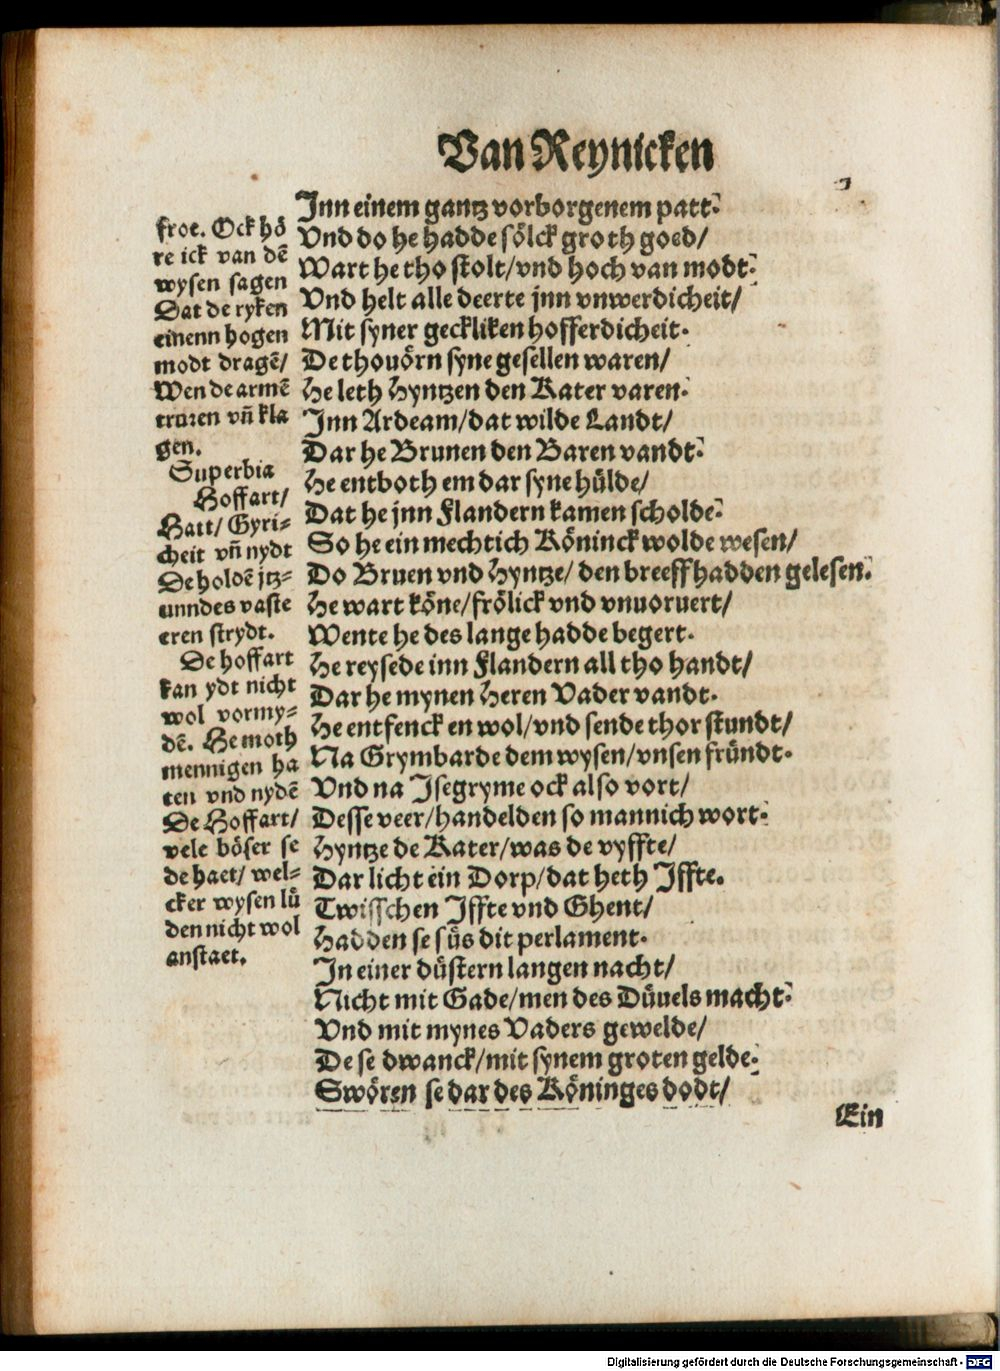 Van Reynicken
froe. Ock hö
re ick van dē
wysen sagen
Dat de ryken
einenn hogen
modt dragē/
Wen de armē
truren vñ kla
gen.
Superbia
Hoffart/
Hatt/ Gyri-
cheit vñ nydt
De holdē jtz-
unndes vaste
eren strydt.
De hoffart
kan ydt nicht
wol vormy-
dē. He moth
mennigen ha
ten vnd nydē
De Hoffart/
vele böser se
de haet/ wel-
cker wysen lü
den nicht wol
anstaet.
Jnn einem gantz vorborgenem patt:
Vnd do he hadde sölck groth goed/
Wart he tho stolt/vnd hoch van modt:
Vnd helt alle deerte jnn vnwerdicheit/
Mit syner geckliken hofferdicheit.
De thouörn syne gesellen waren/
He leth Hyntzen den Kater varen:
Jnn Ardeam/dat wilde Landt/
Dar he Brunen den Baren vandt:
He entboth em dar syne hülde/
Dat he jnn Flandern kamen scholde:
So he ein mechtich Köninck wolde wesen/
Do Bruen vnd Hyntze/ den breeff hadden gelesen:
He wart köne/frölick vnd vnuoruert/
Wente he des lange hadde begert.
He reysede inn Flandern all tho handt/
Dar he mynen Heren Vader vandt.
He entfenck en wol/vnd sende thor stundt/
Na Grymbarde dem wysen/vnsen fründt.
Vnd na Jsegryme ock also vort/
Desse veer/handelden so mannich wort:
Hyntze de Kater/was de vyffte/
Dar licht ein Dorp/dat heth Jffte.
Twisschen Jffte vnd Ghent/
Hadden se süs dit perlament.
In einer düstern langen nacht/
Nicht mit Gade/men des Düuels macht:
Vnd mit mynes Vaders gewelde/
De se dwanck/mit synem groten gelde:
Swören se dar des Köninges dodt/
Ein
Digitalisierung gefördert durch die Deutsche Forschungsgemeinschaft - DFG